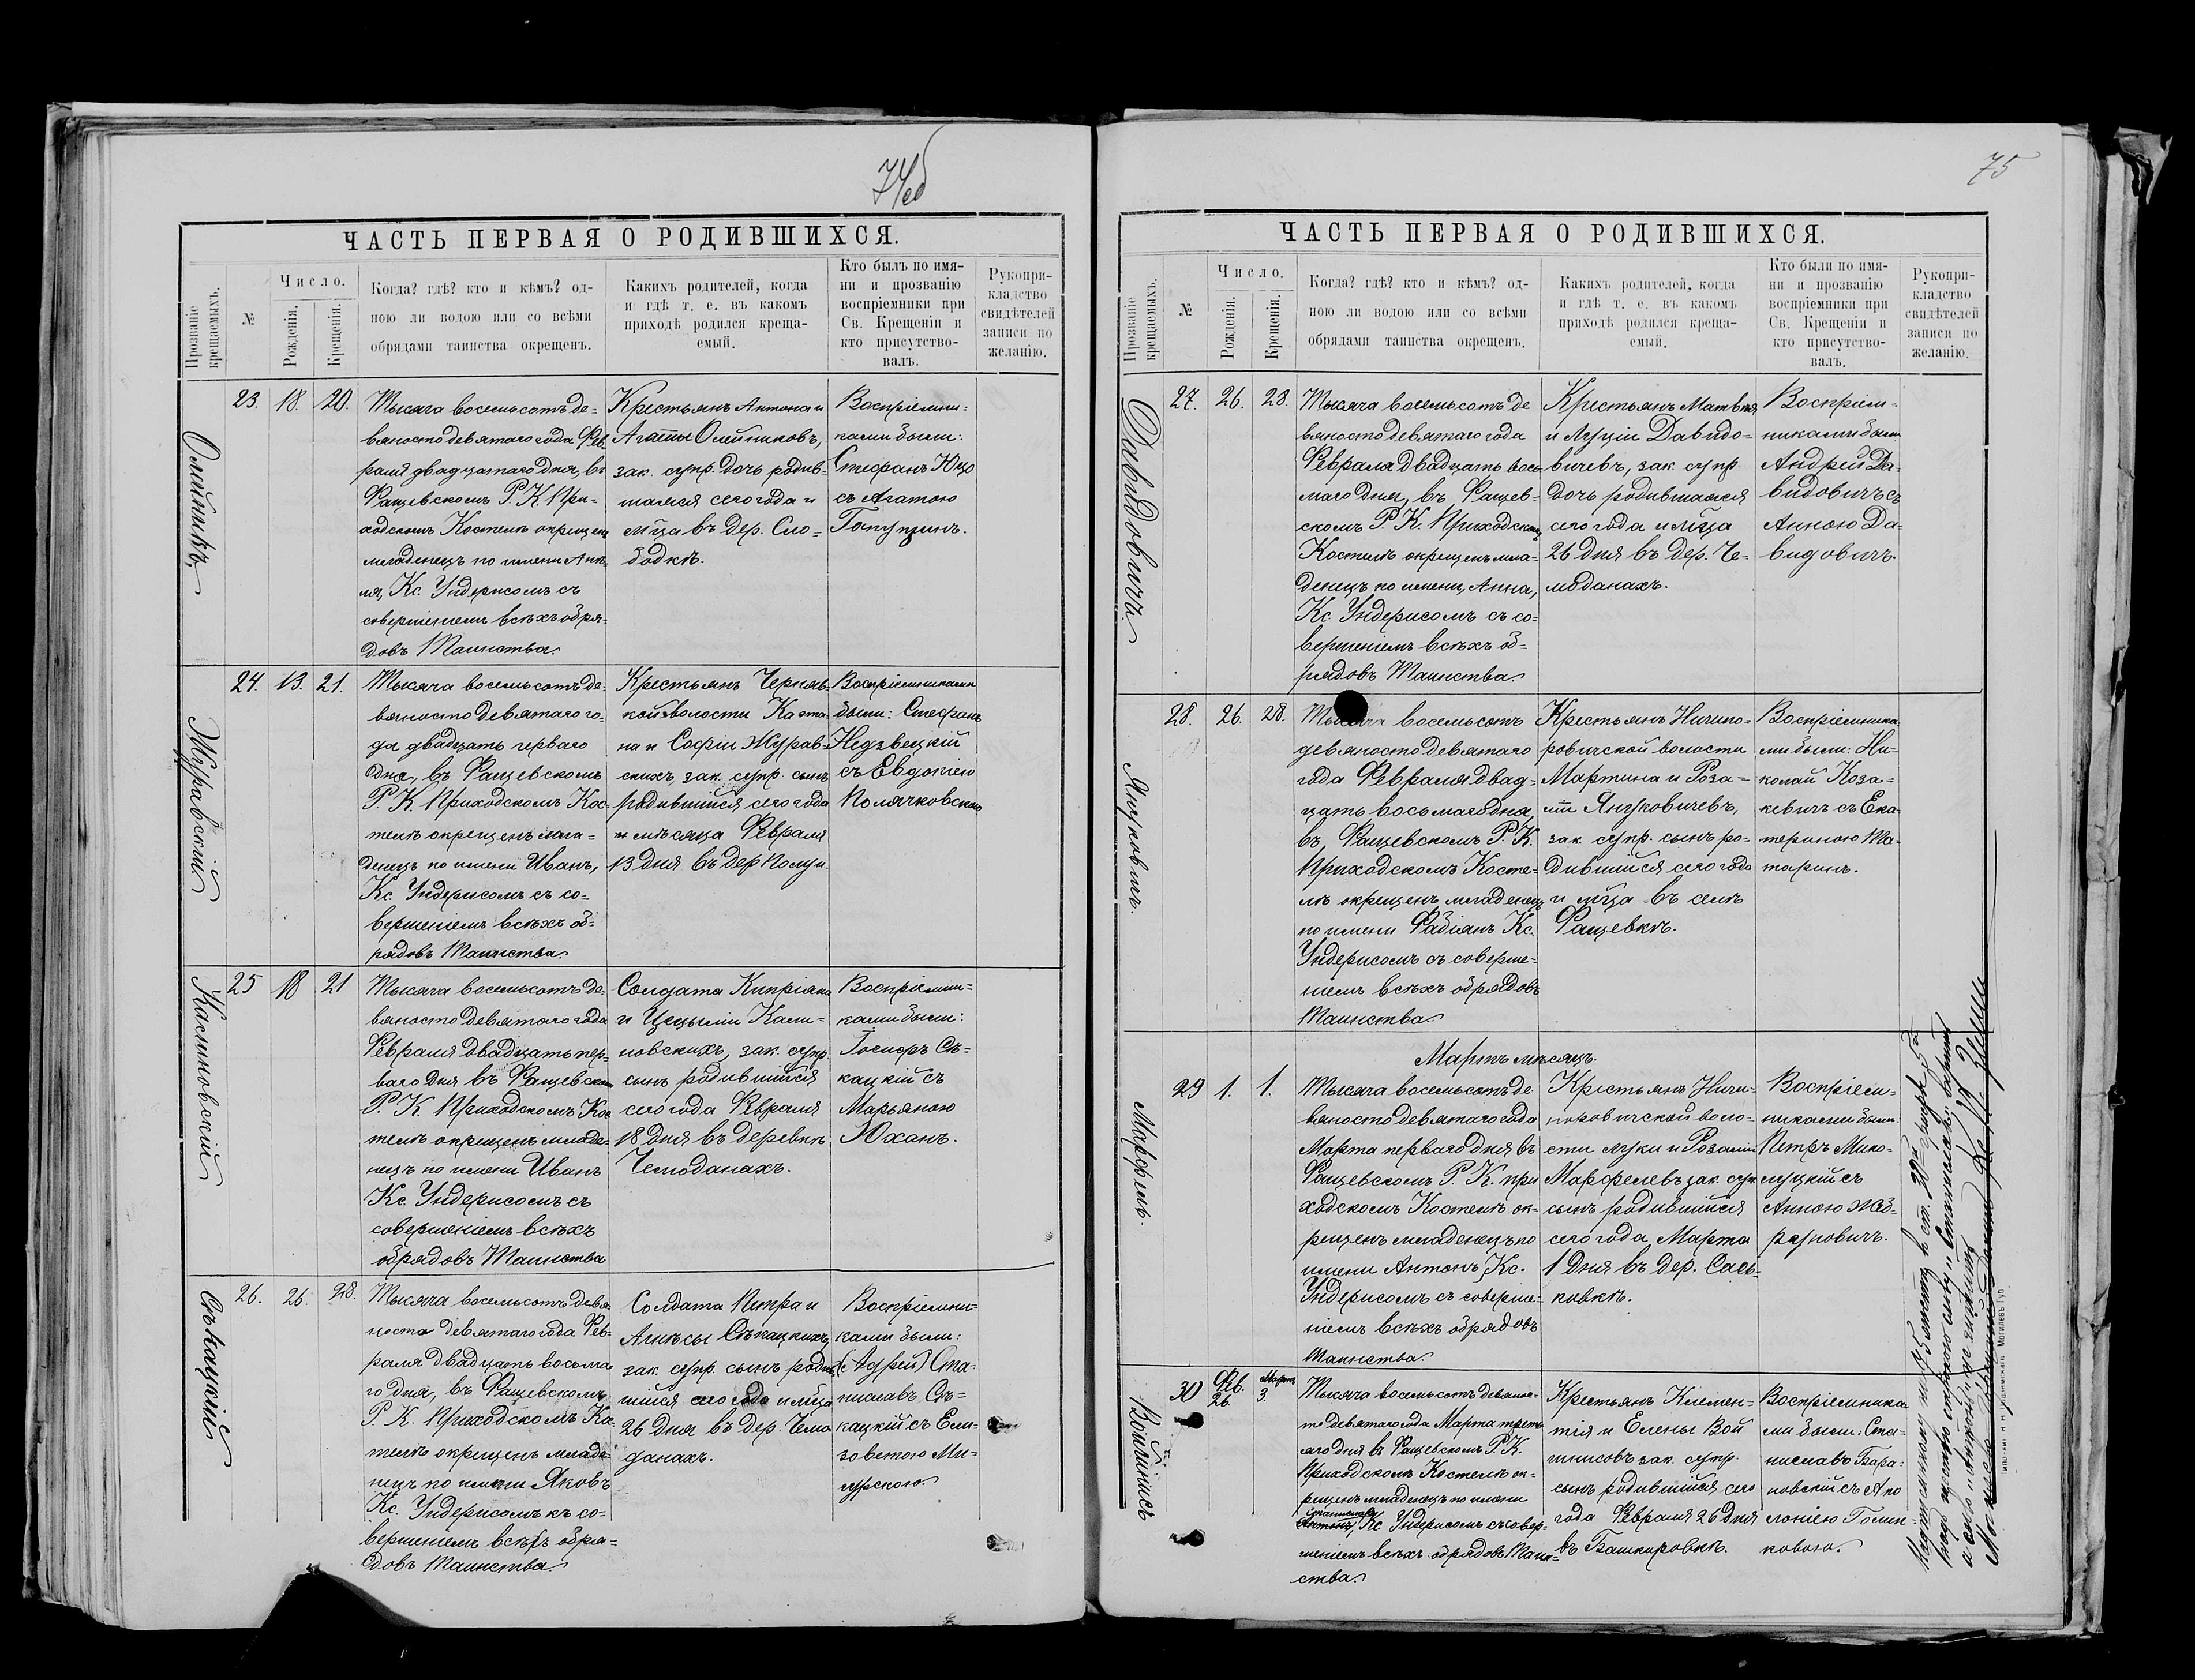 74об
ЧАСТЬ ПЕРВАЯ О РОДИВШИХСЯ.
Прозваніе крещаемыхъ.
№
Число.
Рожденія.
Крещенія.
Когда? гдѣ? кто и кѣмъ? од-
ною ли водою или со всѣми
обрядами таинства окрещенъ.
Какихъ родителей, когда
и гдѣ т. е. въ какомъ
приходѣ родился креща-
емый.
Кто былъ по имя-
ни и прозванію
воспріемники при
Св. Крещеніи и
кто присутство-
валъ.
Рукопри-
кладство
свидѣтелей
записи по
желанію.
Олейникъ
23. 18. 20.
Тысяча восемьсотъ де-
вяносто девятаго года Фев-
раля двадцатаго дня, въ
Фащевскомъ Р. К. При-
ходскомъ Костелѣ окрещенъ
младенецъ по имени Анѣ-
ля, Кс. Ундерисомъ съ
совершеніемъ всѣхъ обря-
довъ Таинства.
Крестьянъ Антона и
Агаты Олейниковъ,
зак. супр. дочь родив-
шаяся сего года и
мѣца въ дер. Сло-
бодкѣ.
Воспріемни-
ками были:
Стефанъ Юцо
съ Агатою
Гопущинъ.
Журавскій
24. 13. 21.
Тысяча восемьсотъ де-
вяносто девятаго го-
да двадцать перваго
дня, въ Фащевскомъ
Р. К. Приходскомъ Кос-
телѣ окрещенъ мла-
денецъ по имени Иванъ,
Кс. Ундерисомъ съ со-
вершеніемъ всѣхъ об-
рядовъ Таинства.
Крестьянъ Черняв-
кой волости Каэта-
на и Софіи Журав-
скихъ, зак. супр. сынъ
родившійся сего года
и мѣсяца Февраля
13 дня въ дер.
Воспріемниками
были: Стефанъ
Недзвецкій
съ Евдокіею
Полячковскою
Калиновскій
25 18 21
Тысяча восемьсотъ де-
вяносто девятаго года
Февраля двадцать пер-
ваго дня въ Фащевскомъ
Р. К. Приходскомъ Кос-
телѣ окрещенъ младе-
нецъ по имени Иванъ
Кс. Ундерисомъ съ
совершеніемъ всѣхъ
обрядовъ Таинства
Солдата Кипріяна
и Цецыліи Кали-
новскихъ, зак. супр.
сынъ родившійся
сего года Февраля
18 дня въ деревнѣ
Чемоданахъ.
Воспріемни-
ками были:
Іосифъ Сѣ-
кацкій съ
Марьяною
Юханъ.
Сѣкацкій
26. 26. 28.
Тысяча восемьсотъ девя-
носто девятаго года Фев-
раля двадцать восьма-
го дня, въ Фащевскомъ
Р. К. Приходскомъ Ко-
телѣ окрещенъ младе-
нецъ по имени Яковъ
Кс. Ундерисомъ къ со-
вершеніемъ всѣхъ обря-
довъ Таинства.
Солдата Петра и
Агнѣсы Сѣкацкихъ,
зак. супр. сынъ родив-
шійся сего года и мѣца
26 дня въ дер. Чемо-
данахъ.
Воспріемни-
ками были:
(Андрей) Ста-
ниславъ Сѣ-
кацкій съ Ели-
заветою Ми-

75
ЧАСТЬ ПЕРВАЯ О РОДИВШИХСЯ.
Прозваніе крещаемыхъ.
№
Число.
Рожденія.
Крещенія.
Когда? гдѣ? кто и кѣмъ? од-
ною ли водою или со всѣми
обрядами таинства окрещенъ.
Какихъ родителей, когда
и гдѣ т. е. въ какомъ
приходѣ родился креща-
емый.
Кто были по имя-
ни и прозванію
воспріемники при
Св. Крещеніи и
кто присутство-
валъ.
Рукопри-
кладство
свидѣтелей
записи по
желанію.
Давидовичъ
27. 26. 28.
Тысяча восемьсотъ де
вяносто девятаго года
Февраля двадцать вось-
маго дня, въ Фащев-
скомъ Р. К. Приходскомъ
Костелѣ окрещенъ мла-
денецъ по имени, Анна,
Кс. Ундерисомъ съ со-
вершеніемъ всѣхъ об-
рядовъ Таинства.
Крестьянъ Матвѣя
и Луціи Давидо-
вичевъ, зак. супр.
дочь родившаяся
сего года и мѣца
26 дня въ дер. Че-
моданахъ.
Воспріем-
никами были
Андрей Да-
видовичъ съ
Анною Да-
видовичъ.
Януковичъ.
28. 26. 28.
Тысяча восемьсотъ
девяносто девятаго
года Февраля двад-
цать восьмаго дня,
въ, Фащевскомъ Р. К.
Приходскомъ Косте-
лѣ окрещенъ младенецъ
по имени Фабіянъ Кс.
Ундерисомъ съ соверше-
ніемъ всѣхъ обрядовъ
Таинства.
Крестьянъ Ничипо-
ровичской волости
Мартина и Роза-
ліи Януковичевъ,
зак. супр. сынъ ро-
дившійся сего года
и мѣца въ селѣ
Фащевкѣ.
Воспріемника-
ми были: Ни-
колай Коза-
кевичъ съ Ека-
териною Та-
таринъ.
Мартъ мѣсяцъ.
Марфель.
29 1. 1.
Тысяча восемьсотъ де
вяносто девятаго года
Марта перваго дня въ
Фащевскомъ Р. К. при
ходскомъ Костелѣ ок-
рещенъ младенецъ по
имени Антонъ, Кс.
Ундерисомъ съ соверше-
ніемъ всѣхъ обрядовъ
Таинства.
Крестьянъ Ничи-
поровичской воло-
сти Луки и Розаліи
Марфелевъ зак. супр.
сынъ родившійся
сего года Марта
1 дня въ дер. Сась-
ковкѣ.
Воспріем-
никами были:
Петръ Мико-
луцкій съ
Анною

Войшнисъ
30 Фев. 26. Мартъ 3.
Тысяча восемьсотъ девянос-
то девятаго года Марта треть-
яго дня въ Фащевскомъ Р. К.
Приходскомъ Костелѣ ок-
рещенъ младенецъ по имени
Станиславъ
Антонъ, Кс. Ундерисомъ съ совер-
шеніемъ всѣхъ обрядовъ Таин-
ства.
Крестьянъ Климен-
тія и Елены Вой
шнисовъ зак. супр.
сынъ родившійся сего
года Февраля 26 дня
въ Башкировкѣ.
Воспріемника-
ми были: Ста-
ниславъ Бара-
новскій съ Апо
лоніею Голин-
ковою.